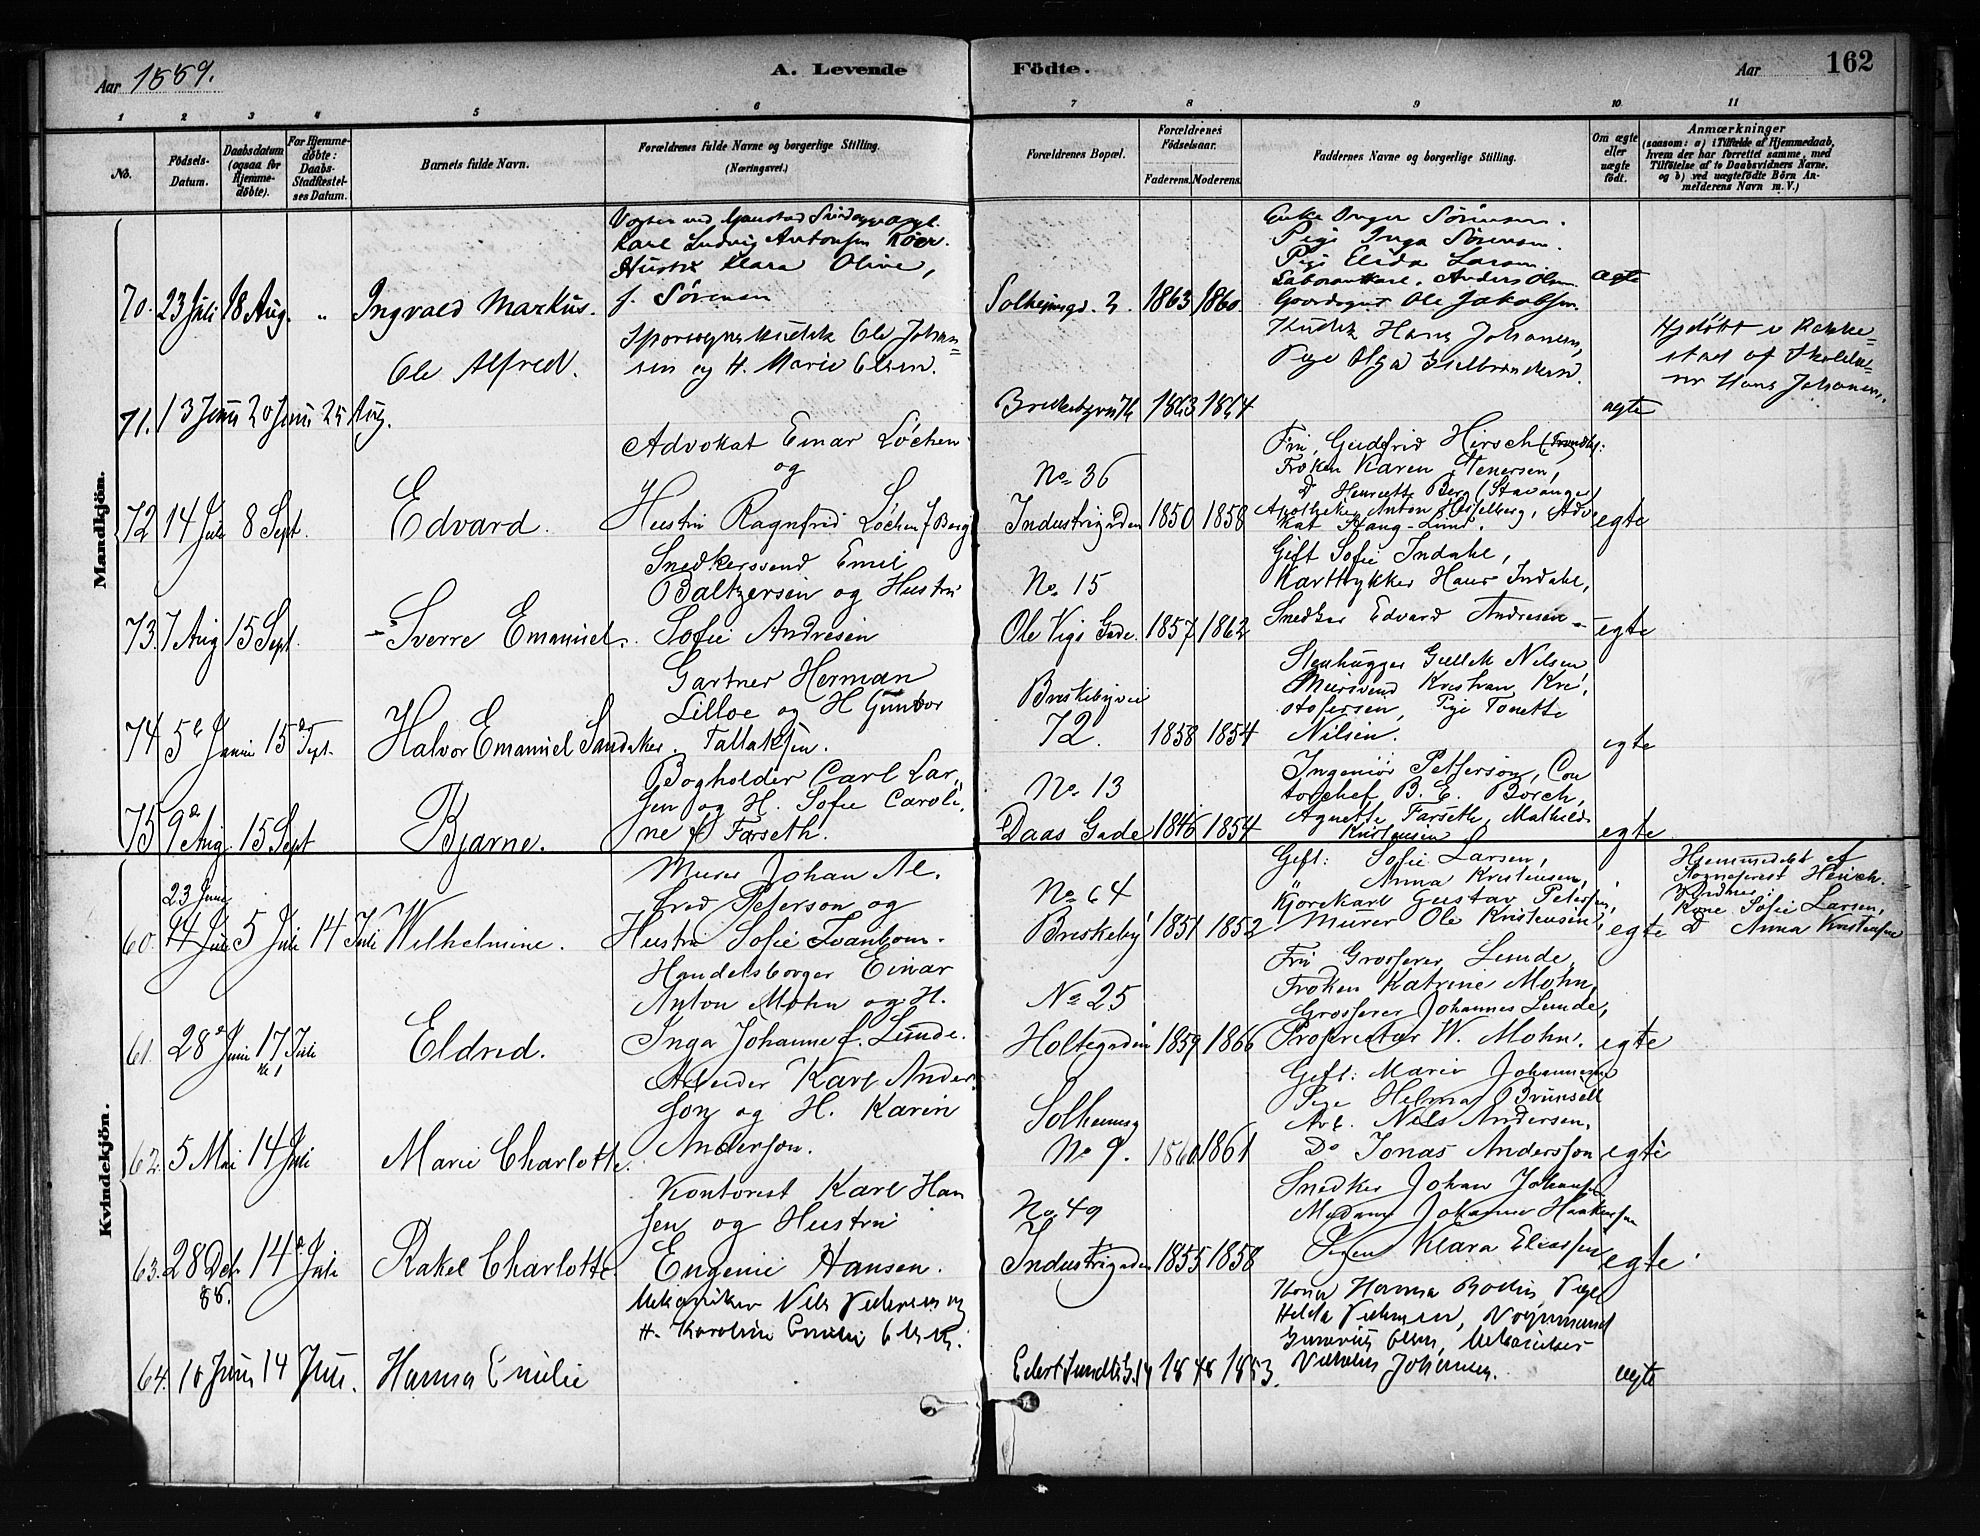 Aar 1889.
A. Levende
Födte.
Aar
162
1 2 3 4 5 6 7 8 9 10 11
No.
Födsels-Datum.
Daabsdatum (ogsaa for Hjemme-döbte).
For Hjemme-döbte: Daabs-Stadfæstelses Datum.
Barnets fulde Navn.
Forældrenes fulde Navne og borgerlige Stilling. (Næringsvei.)
Forældrenes Bopæl.
Forældrenes Födselsaar.
Faderens. Moderens.
Faddernes Navne og borgerlige Stilling.
Om ægte eller uægte födt.
Anmærkninger
(saasom: a) i Tilfælde af Hjemmedaab, hvem der har forrettet samme, med Tilföielse af to Daabsvidners Navne. og b) ved uægtefödte Börn Anmelderens Navn m. V.)
Mandkjön.
70. 23 Juli 18 Aug. „ Ingvald Markus.
Karl Ludvig Antonsen
Hustr Klara Olive,
f. Sörensen
Solheimsgd. 2. 1863 1860.
Enke Inger Sörensen.
Pige Inga Sörensen.
Pige Elida Larsen
Anders Olsen
Ole Jakobsen.
ægte
71. 13 Juni 20 Juni 25 Aug.
Ole Alfred.
Ole Johan=
sen og H. Marie Olsen.
Briskebyvei 1863 1864
Hans Johansen,
Pige Olga
ægte
Hjdöbt i Rakke=
stad af Skolelæ=
rer Hans Johansen.
72 14 Juli 8 Sept. Edvard.
Advokat Einar Löchen
og
Hustru Ragnfrid Löchen f Berg
No. 36
Industrigaden 1850 1858
Fru, Gudfrid Hirsch
Fröken Karen Stenersen,
D Henriette Berg (Stavanger)
Apotheker Anton Hesselberg, Advo
kat Stang-Lund.
egte
73. 7 Aug 15 Sept. Sverre Emanuel.
Snedkersvend Emil
Baltzersen og Hustru
Sofie Andresen
No. 15
Ole Vigs Gade. 1857 1862
Gift Sofie Indahl,
Karttrykker Hans Indahl,
Snedker Edvard Andresen
egte
74. 5 Juni 15 Sept. Halvor Emanuel Sandaker.
Gartner Herman
Lilloe og H Gunvor
Tallaksen.
Briskebyvei
72. 1858 1854
Stenhugger Gullik Nilsen
Kristian Kri
stofersen, Pige Tonette
Nilsen.
egte
75 9 Aug. 15 Sept Bjarne.
Bogholder Carl Lar
sen og H. Sofie Caroli
ne f Farseth.
No. 13
Daas Gade 1846 1854
Ingeniör Petterson, Con
torchef B. E. Borch,
Agnette Farseth, Mathilde
Kristensen
egte
Kvindekjön.
60. 23 Juni 14 Juli 5 Juli 14 Juli Wilhelmine.
Murer Johan Al
fred Peterson og
Hustru Sofie Tvanbom.
No. 64
Briskeby 1851 1852
Gift: Sofie Larsen,
„ Anna Kristensen,
Kjörekarl Gustav Petersen,
Murer Ole Kristensen,
egte
Hjemmedöbt af
Sogneprest Heuch.
Vidner:
Kone Sofie Larsen,
D Anna Kristensen
61. 28 Juni 17 Juli Eldrid.
Handelsborger Einar
Anton Mohn og H.
Inga Johanne f. Lunde.
No. 25
Holtegaden 1859 1866
Fru Grosserer Lunde,
Fröken Katrine Mohn,
Grosserer Johannes Lunde,
W. Mohn.
egte
62. 5 Mai 14 Juli Marie Charlotte.
Arbeider Karl Ander
son og H. Karin
Anderson.
Solheimsg
No 9. 1860 1861
Gift: Marie Johannesen
Pige Helma Brunsell
Arb. Nils Andersen,
Do Jonas Andersson
egte
63. 28 Det. 88. 14 Juli Rakel Charlotte
Kontorist Karl Han
sen og Hustru
Eugenie Hansen.
No. 49
Industrigaden 1855 1858
Snedker Johan Johansen
Madame Johanne Haakensen
Pigen Klara Eliassen
egte
64. 10 Juni 14 Juli. Hanna Emilie
Mekaniker Nils
H. Karoline Emilie Olsen.
Eilert Sundts G. 14 1848 1853.
Kona Hanna Bodin, Pige
Hilda
Olsen,
Johansen.
ægte